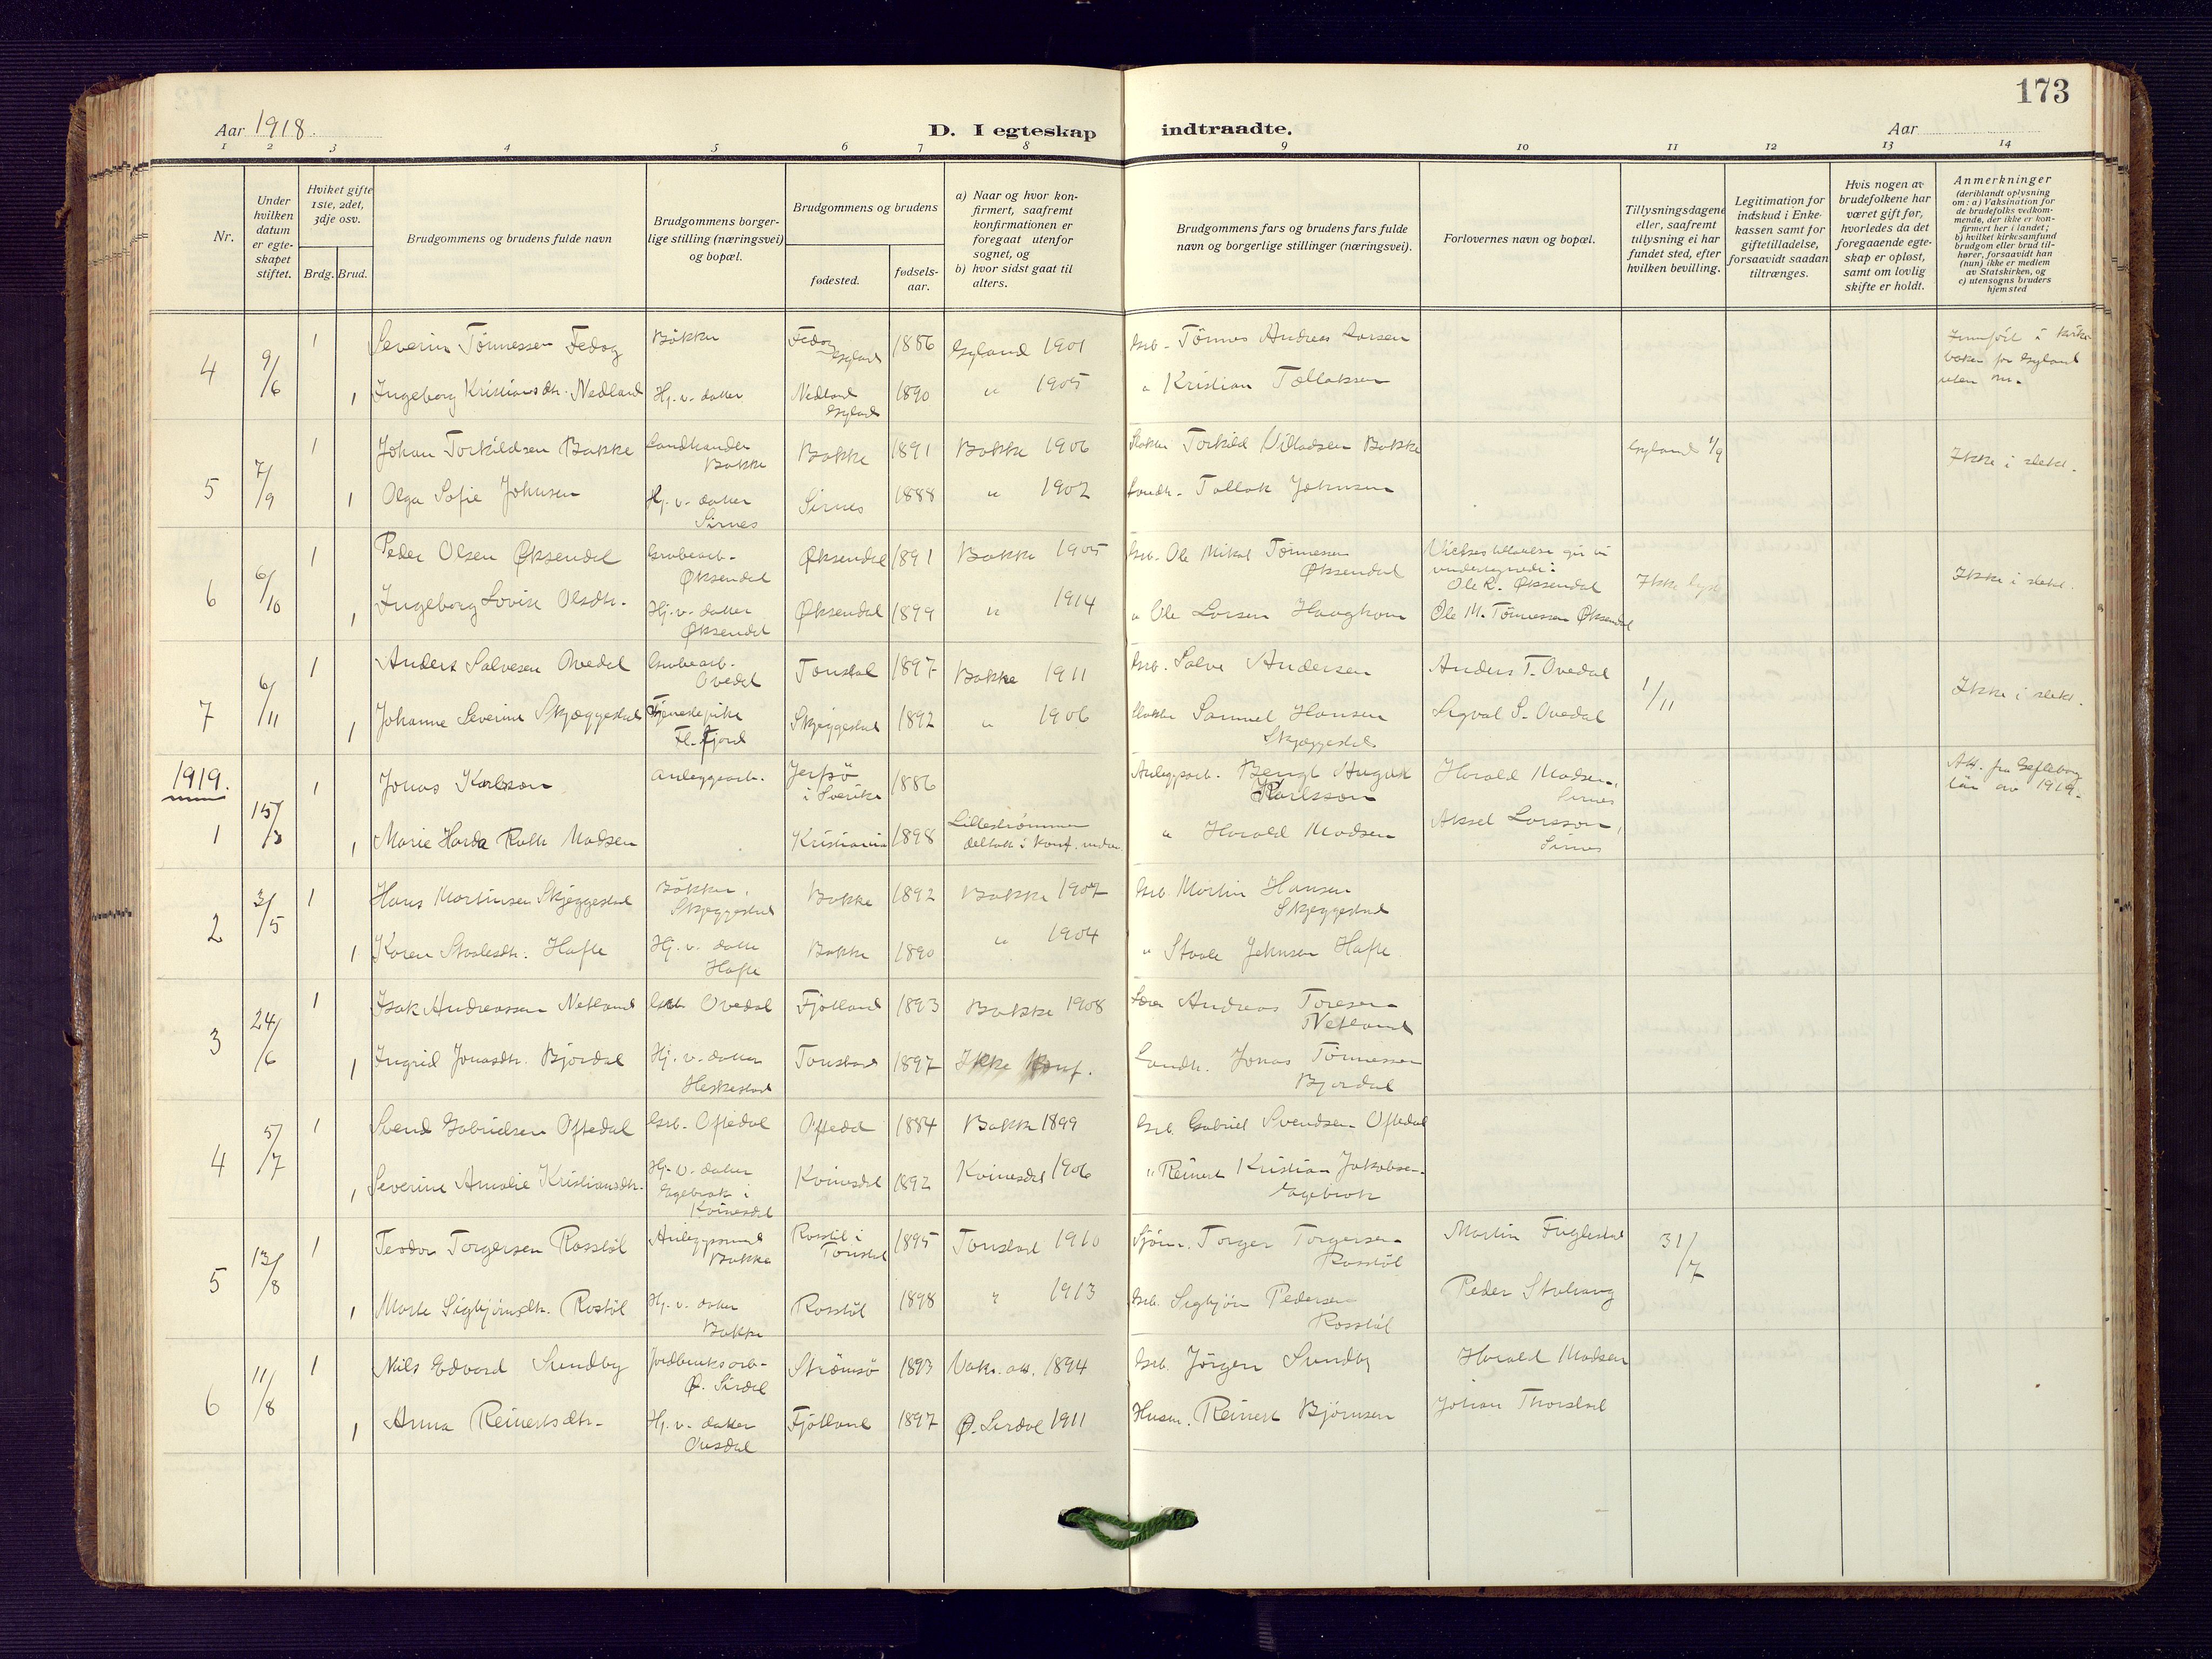 173
Aar 1918.
D. I egteskap
indtraadte.
Aar
1 2 3 4 5 6 7 8 9 10 11 12 13 14
Nr.
Under hvilken datum er egteskapet stiftet.
Hviket gifte 1ste, 2det, 3dje osv.
Brdg. Brud.
Brudgommens og brudens fulde navn
Brudgommens borgerlige stilling (næringsvei) og bopæl.
Brudgommens og brudens
fødested.
fødselsaar.
a) Naar og hvor konfirmert, saafremt konfirmationen er foregaat utenfor sognet, og
b) hvor sidst gaat til alters.
Brudgommens fars og brudens fars fulde navn og borgerlige stillinger (næringsvei).
Forlovernes navn og bopæl.
Tillysningsdagene eller, saafremt tillysning ei har fundet sted, efter hvilken bevilling.
Legitimation for indskud i Enkekassen samt for giftetilladelse, forsaavidt saadan tiltrænges.
Hvis nogen av brudefolkene har været gift før, hvorledes da det foregaaende egteskap er opløst, samt om lovlig skifte er holdt.
Anmerkninger
(deriblandt oplysning om: a) Vaksination for de brudefolks vedkommende, der ikke er konfirmert her i landet; b) hvilket kirkesamfund brudgom eller brud tilhører, forsaavidt han (hun) ikke er medlem av Statskirken, og c) utensogns bruders hjemsted
4 9/6 1 Severin Tönnessen Fedog Bökker Fedog Gyland 1886 Gyland 1901 Grb. Tönnes Andreas Larsen
1 Ingeborg Kristiansdtr. Nedland Hj. v. datter Nedland Gyland 1890 " 1905 " Kristian Tallaksen
Innfört i kirkeboken for Gyland uten nr.
5 7/9 1 Johan Torkildsen Bakke Landhandler Bakke Bakke 1891 Bakke 1906 Torkild Villadsen Bakke Gyland 1/9 Ikke i slekt.
1 Olga Sofie Johnsen Hj. v. datter Sirnes Sirnes 1888 " 1902 Landh. Tallak Johnsen
6 6/10 1 Peder Olsen Øksendal Grubearb. Øksendal Øksendal 1891 Bakke 1905 Grb. Ole Mikal Tönnessen Øksendal undertegnede: Ole R. Øksendal Ikke lyst Ikke i slekt.
1 Ingeborg Lovise Olsdtr. Hj. v. datter Øksendal Øksendal 1899 " 1914 " Ole Larsen Haaghom Ole M. Tönnessen Øksendal
7 6/11 1 Anders Salvesen Ovedal Grubearb. Ovedal Tonstad 1897 Bakke 1911 Grb. Salve Andersen Anders T. Ovedal 1/11 Ikke i slekt.
1 Johanne Severine Skjæggestad Tjenestepike Fl. Fjord Skjeggestad 1892 " 1906 Samuel Hansen Skjæggestad Sigval S. Ovedal
1919.
1 15/3 1 Jonas Karlsson Anleggsarb. Jerfsö i Sverike 1886 Anleggsarb. Bengt August Karlsson Harald Madsen, Sirnes Att. fra Gefleborg län av 1919.
1 Marie Harda Ruth Madsen Kristiania 1898 Lillestrømmen deltok i konf. " Harald Madsen Aksel Larsson, Sirnes
2 3/5 1 Hans Martinsen Skjeggestad Bökker, Skjeggestad Bakke 1892 Bakke 1907 Grb. Martin Hansen Skjeggestad
1 Karen Staalesdtr. Hafte Hj. v. datter Hafte Bakke 1890 " 1904 " Staale Johnsen Hafte
3 24/6 1 Isak Andreassen Netland Grb. Ovedal Fjotland 1893 Bakke 1908 Lærer Andreas Toresen Netland
1 Ingrid Jonasdtr. Bjordal Hj. v. datter Heskestad Tonstad 1897 Ikke konf. Landh. Jonas Tönnessen Bjordal
4 5/7 1 Svend Gabrielsen Oftedal Grb. Oftedal Oftedal 1884 Bakke 1899 Grb. Gabriel Svendsen Oftedal
1 Severine Amalie Kristiansdtr. Hj. v. datter Egebrok i Kvinesdal Kvinesdal 1892 Kvinesdal 1906 " Reinert Kristian Jakobsen Egebrok
5 13/8 1 Teodor Torgersen Rosstöl Anleggsmand Bakke Rosstöl i Tonstad 1895 Tonstad 1910 Torger Torgersen Rosstöl Martin Fuglestad 31/7
1 Marte Sigbjörnsdtr. Rostöl Hj. v. datter Bakke Rosstöl 1898 " 1913 Grb. Sigbjörn Pedersen Rosstöl Peder
6 11/8 1 Nils Edvard Sundby Jordbruksarb. Ø. Sirdal Strömsö 1893 Vaks. att. 1894 Grb. Jörgen Sundby Harald Madsen
1 Anna Reinertsdtr. Hj. v. datter Ousdal Fjotland 1897 Ø. Sirdal 1911 Husm. Reinert Björnsen Johan Thorstad